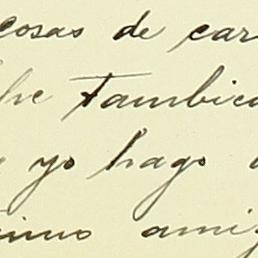 cosas de car
he Tambien
yo hago
amig